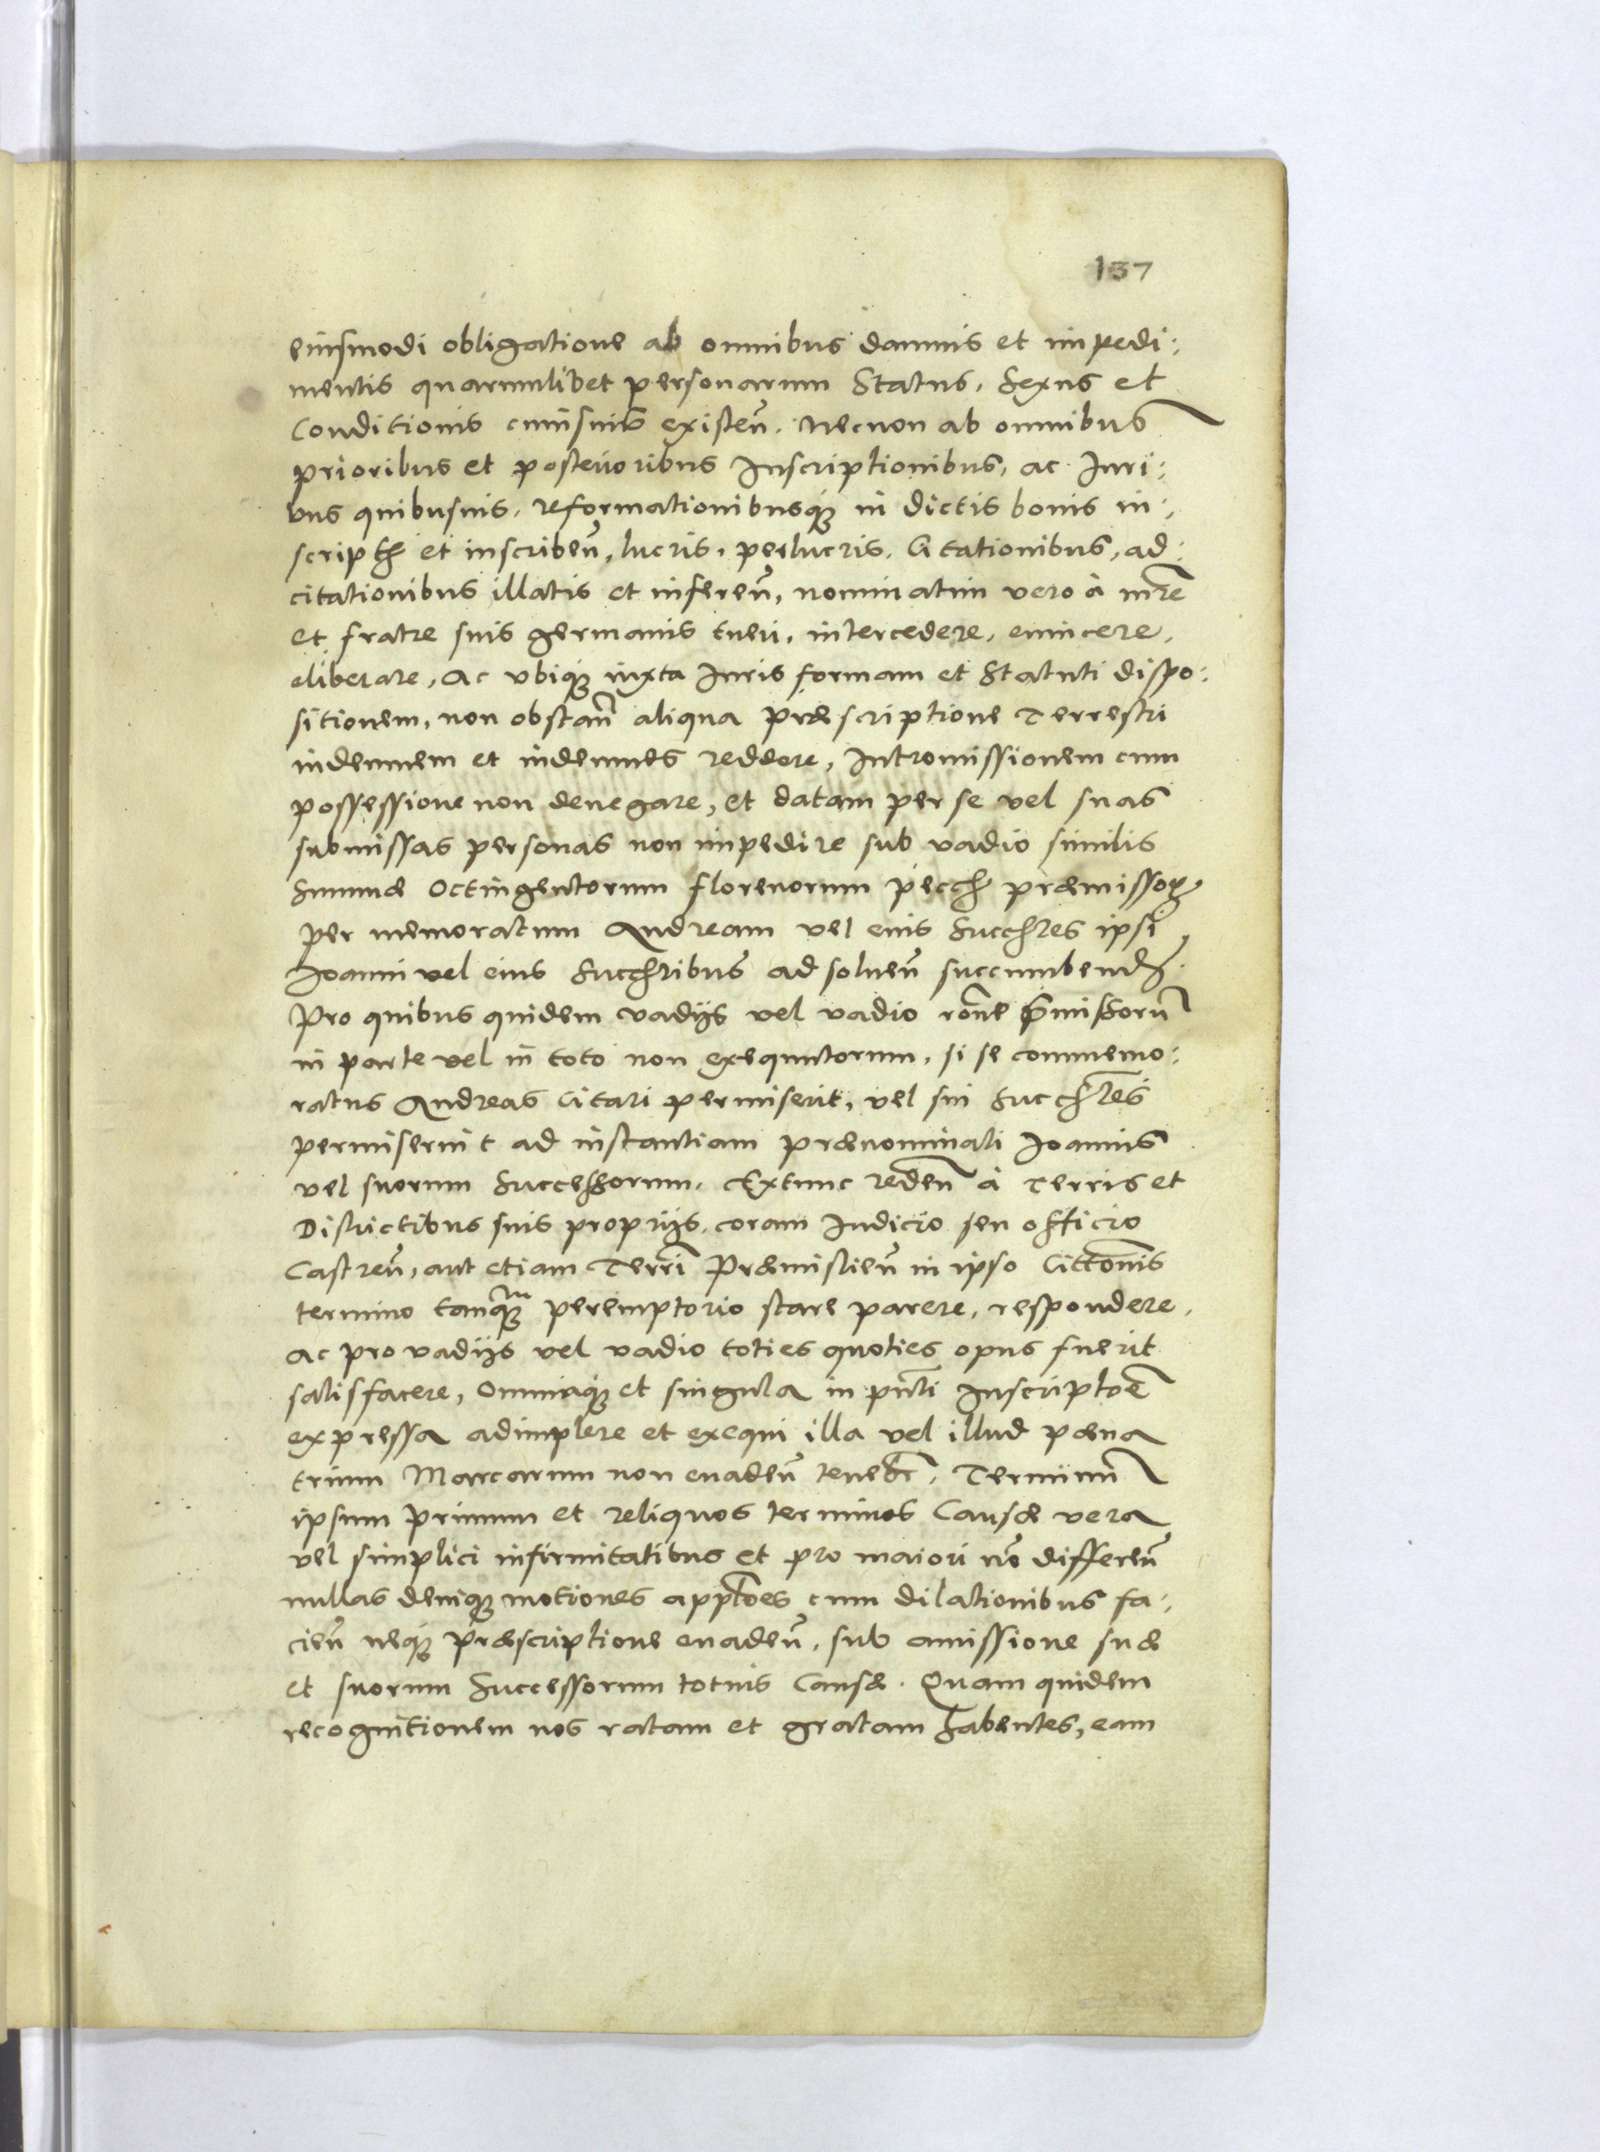 137
eiusmodi obligatione ab omnibus damnis et impedi:
mentis quarumlibet personarum Status, Sexus et
Conditionis cuiusuis existen̄. Necnon ab omnibus
prioribus et posterioribus Inscriptionibus, ac Iuri:
bus quibusuis, reformationibusq́ue in dictis bonis in:
script et inscriben̄, lucris, perlucris, Citationibus, ad:
citationibus illatis et inferen̄, nominatim vero à mr̄e
et fratre suis germanis tueri, intercedere, euincere,
eliberare, Ac vbiq́ue iuxta Iuris formam et Statuti dispo:
sitionem, non obstan̄ aliqua præscriptione Terrestri
indemnem et indemnes reddere, Intromissionem cum
possessione non denegare, et datam per se vel suas
submissas personas non impedire sub vadio similis
Summæ Octingentorum florenorum pecch præmissoꝝ
per memoratum Andream vel eius Succhres ipsi
Joanni vel eius Succhribus ad soluen̄ succumbend.
Pro quibus quidem vadijs vel vadio ron̄e p̄missorū
in parte vel in toto non exequutorum, si se commemo:
ratus Andreas Citari permiserit, vel sui Succh̄res
permiserint ad instantiam prænominati Joannis
vel suorum Successorum. Extunc reden̄ à Terris et
Districtibus suis proprijs, coram Iudicio seu officio
Castren̄, aut etiam Terr̄i Præmislien̄ in ipso Citt̄onis
termino tanquam peremptorio stare parere, respondere,
Ac pro vadijs vel vadio toties quoties opus fuerit
satisfacere, Omniaq́ue et singula in pn̄ti Inscripto͞e
expressa adimplere et exequi illa vel illud pæna
trium Marcarum non euaden̄ tenebr̄. Terminū
ipsum primum et reliquos terminos Causæ vera
vel simplici infirmitatibus et pro maiori n̄o differen̄
nullas deniq́ue motiones appt̄oes cum dilationibus fa:
cien̄ neq́ue præscriptione euaden̄, sub amissione suæ
et suorum Successorum totius Causæ. Quam quidem
recognitionem nos ratam et gratam habentes, eam